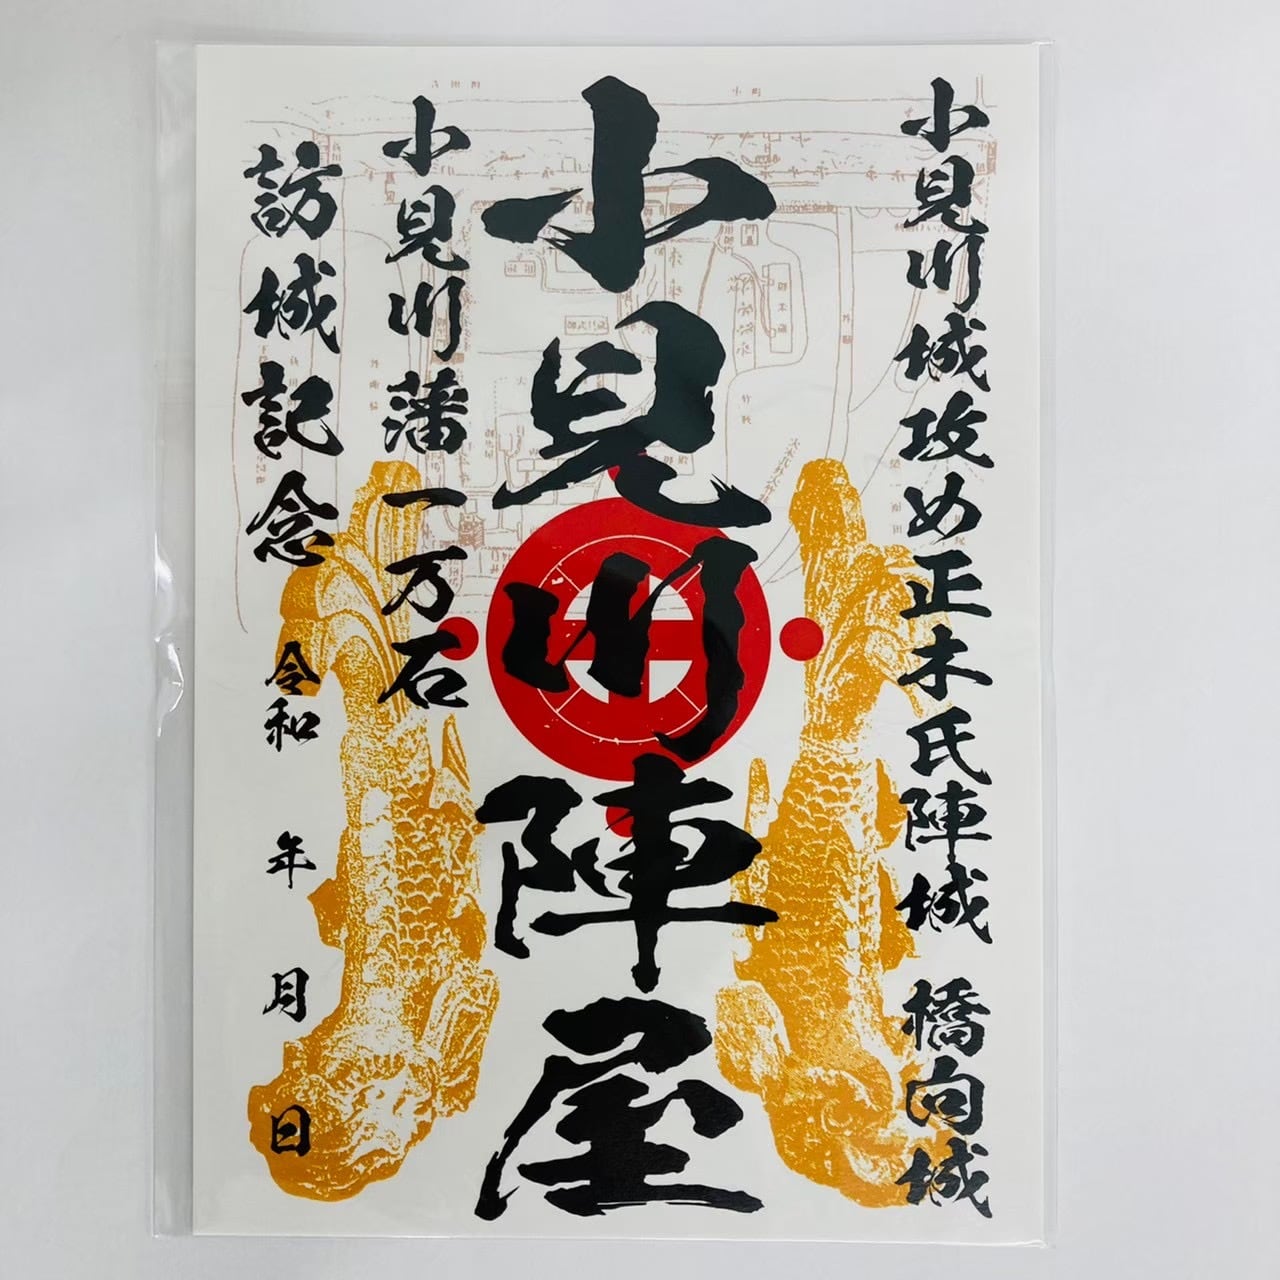 小見川城攻め正木氏陣城 橋向城
小見川陣屋
小見川藩一万石
訪城記念
令和 年 月 日